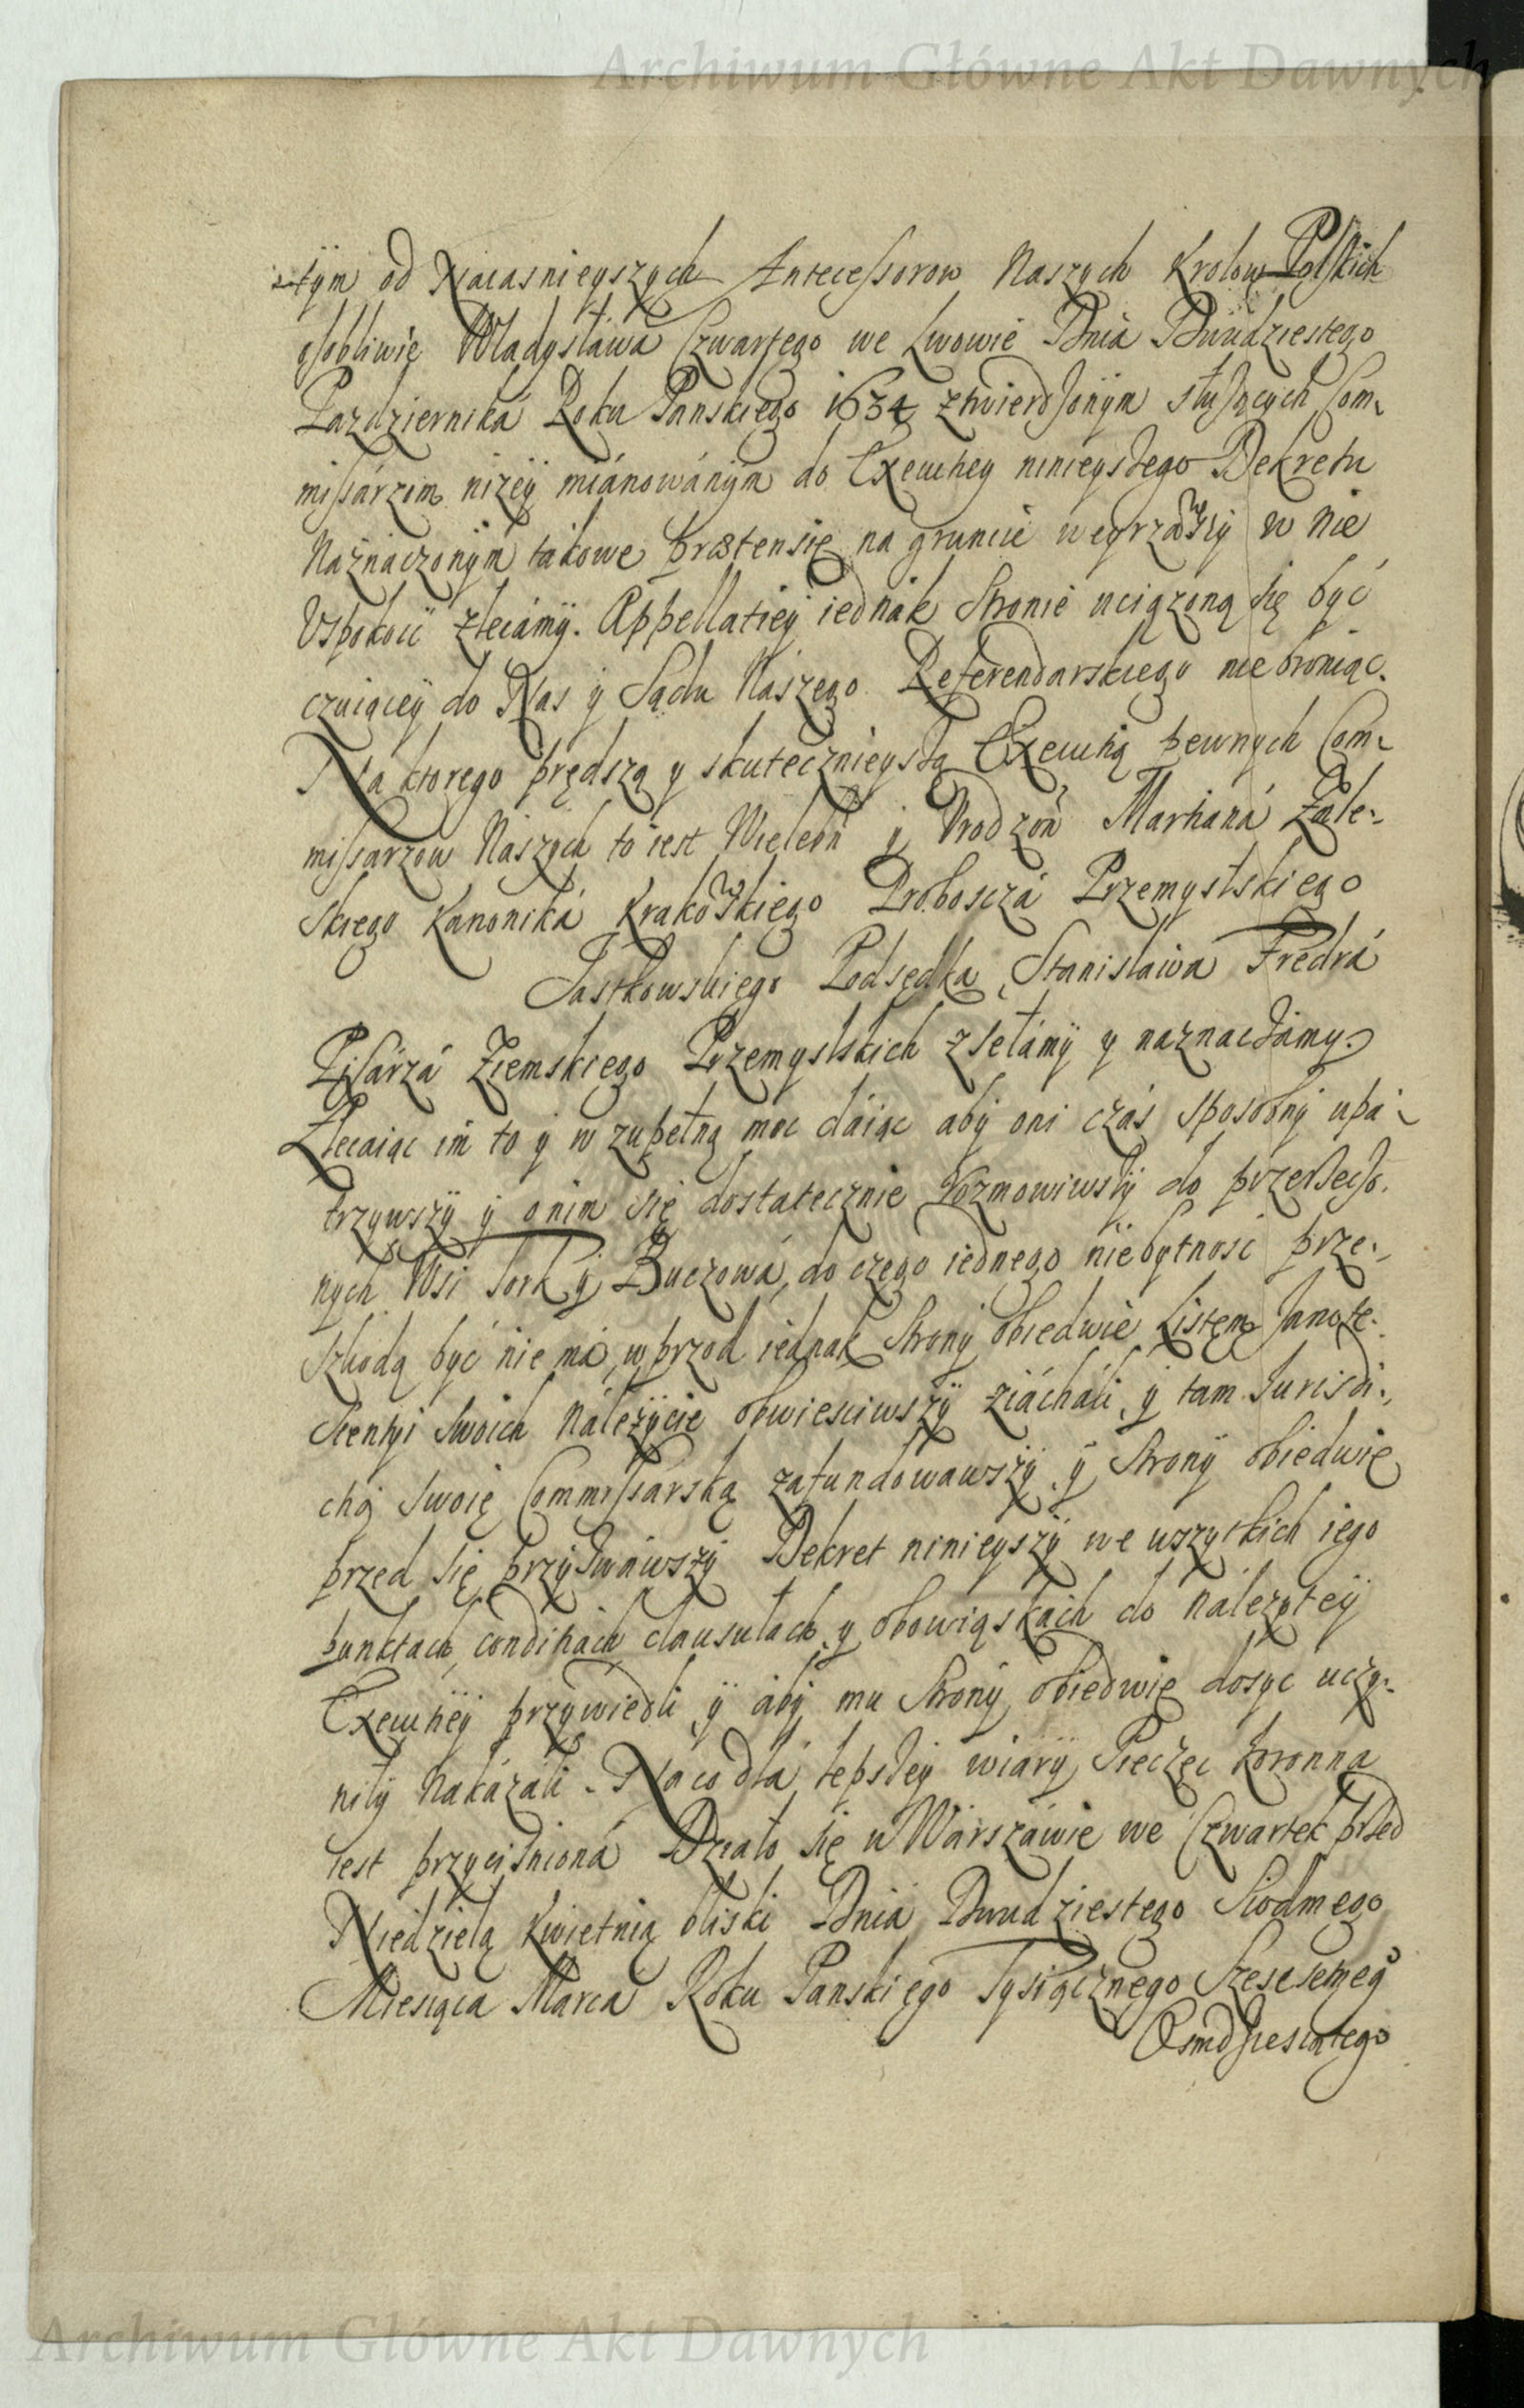 Archiwum Główne Akt Dawnych
tym od Naiasnieyszych Antecessorow Naszych Krolow Polskich
osobliwie Władysława Czwartego we Lwowie Dnia Dwudziestego
Pazdziernika Roku Panskiego 1634 ztwierdzonym słuzących Com-
missarzom nizey mianowanym do Executiey ninieyszego Dekretu
Naznaczonym takowe prætensie na gruncie weyrzawszy w nie
Uspokoic zlecamy. Appellatiey iednak Stronie uciązoną się być
czuiącey do Nas y Sądu Naszego Referendarskiego nie broniąc.
Na ktorego prędszą y skutecznieyszą Executią pewnych Com-
missarzow Naszych to iest Wieleb̃ y Urodzoñ Martiana Zale-
skiego Kanonika Krakowskiego Proboscza Przemyslskiego
Jastkowskiego Podsędka, Stanisława Fredra
Pisarza Ziemskiego Przemyslskich zsełamy y naznaczamy.
Zlecaiąc im to y w zupełną moc daiąc aby oni czas sposobny upa-
trzywszy y o nim się dostatecznie rozmowiwszy do przerzeczo-
nych Wsi Tork y Buczowa, do czego iednego niebytnosc prze-
szkodą być nie ma, w przod iednak Strony obiedwie Listem Innote-
scentyi swoich Nalezycie obwiesciwszy ziachali, y tam Jurisdi-
ctią swoię Commissarską zafundowawszy y Strony obiedwie
przed się przyzwawszy Dekret ninieyszy we wszytkich iego
punktach, conditiach clausulach y obowiąskach do nalezytey
Executiey przywiedli, y aby mu Strony obiedwie dosyc uczy-
niły Nakazali. Na co dla lepszey wiary Pieczęc Koronna
iest przycisniona Działo się w Warszawie we Czwartek przed
Niedzielą Kwietnią bliski Dnia Dwudziestego Siodmego
Miesiąca Marca Roku Panskiego Tysiącznego Szescsetnego
Osmdziesiątego
Archiwum Główne Akt Dawnych